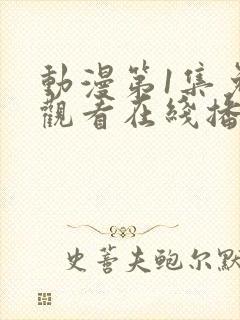 動漫第1集免
觀看在綫播
史蒈夫鲍尔默